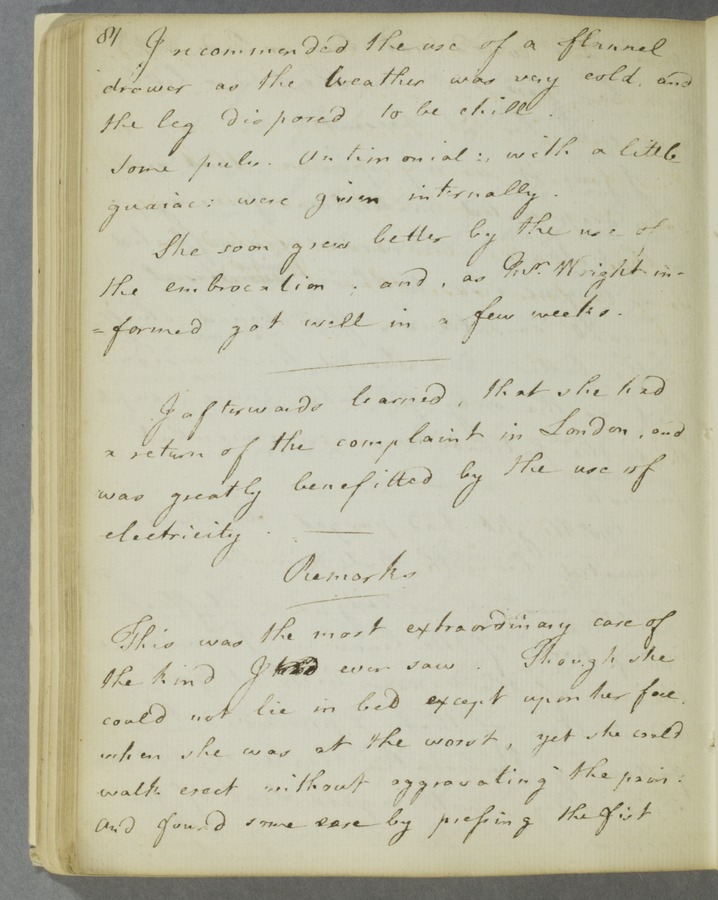 84
I recommended the use of a flannel
drawer as the Weather was very cold, and
the leg disposed to be chill.
Some pulv. Antimonial:, with a little
guaiac: were given internally.
She soon grew better by the use of
the embrocation; and, as Mr. Wright in-
=formed got well in a few weeks.
I afterwards learned, that she had
a return of the complaint in London, and
was greatly benefitted by the use of
electricity.
Remarks
This was the most extraordinary case of
the kind I ever saw. Though she
could not lie in bed except upon her face,
when she was at the worst, yet she could
walk erect without aggravating the pain:
and found some ease by pressing the fist